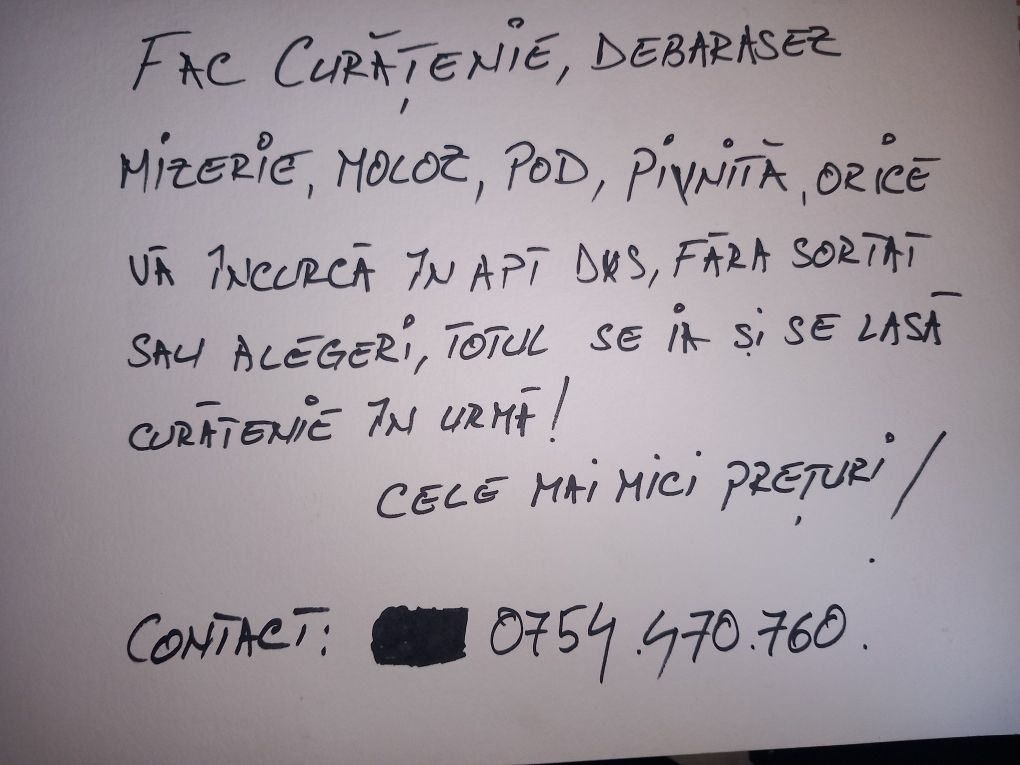 FAC CURĂȚENIE, DEBARASEZ
MIZERIE, MOLOZ, POD, PIVNITĂ, ORICE
VĂ ÎNCURCĂ ÎN APT DVS, FĂRA SORTAT
SAU ALEGERI, TOTUL SE IA ȘI SE LASĂ
CURĂTENIE ÎN URMĂ!
CELE MAI MICI PREȚURI!
CONTACT: 0754.470.760.